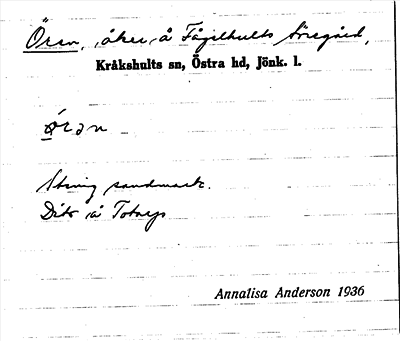 Ören, åker å Fågelhults Söregård,
Kråkshults sn, Östra hd, Jönk. l.
ö̀rən
Stenig sandmark.
Dito å Totarp
Annalisa Anderson 1936